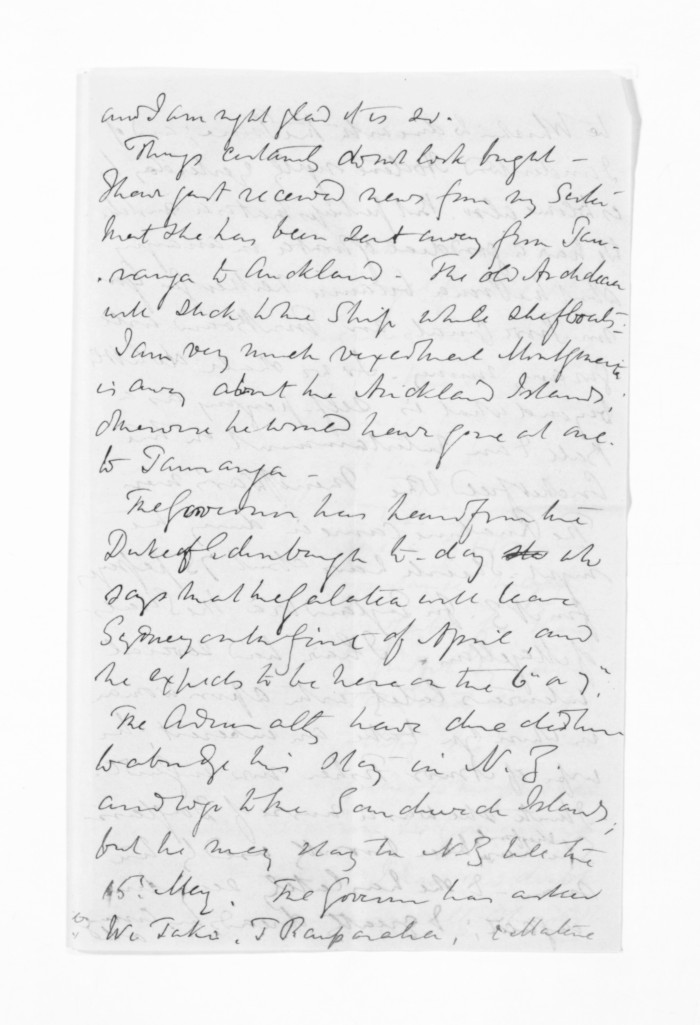 and I am right glad it is so.
Things certainly do not look bright -
I have just received news from my Sister
that she has been sent away from Tau-
-ranga to Auckland - The old Archdeacon
will stick to the Ship while she floats -
I am very much vexed that
is away about the Auckland Islands,
otherwise he would have gone at once
to Tauranga -
The Governor has heard from the
Duke of Edinburgh to-day who
says that the Galatea will leave
Sydney on the first of April, and
he expects to be here on the 6th or 7th.
The Admiralty have directed him
to abridge his stay in N. Z.
and to go to the Sandwich Islands,
but he may stay in N Z till the
15th May. The Governor has asked
Wi Tako, T Rauparaha, & Matene